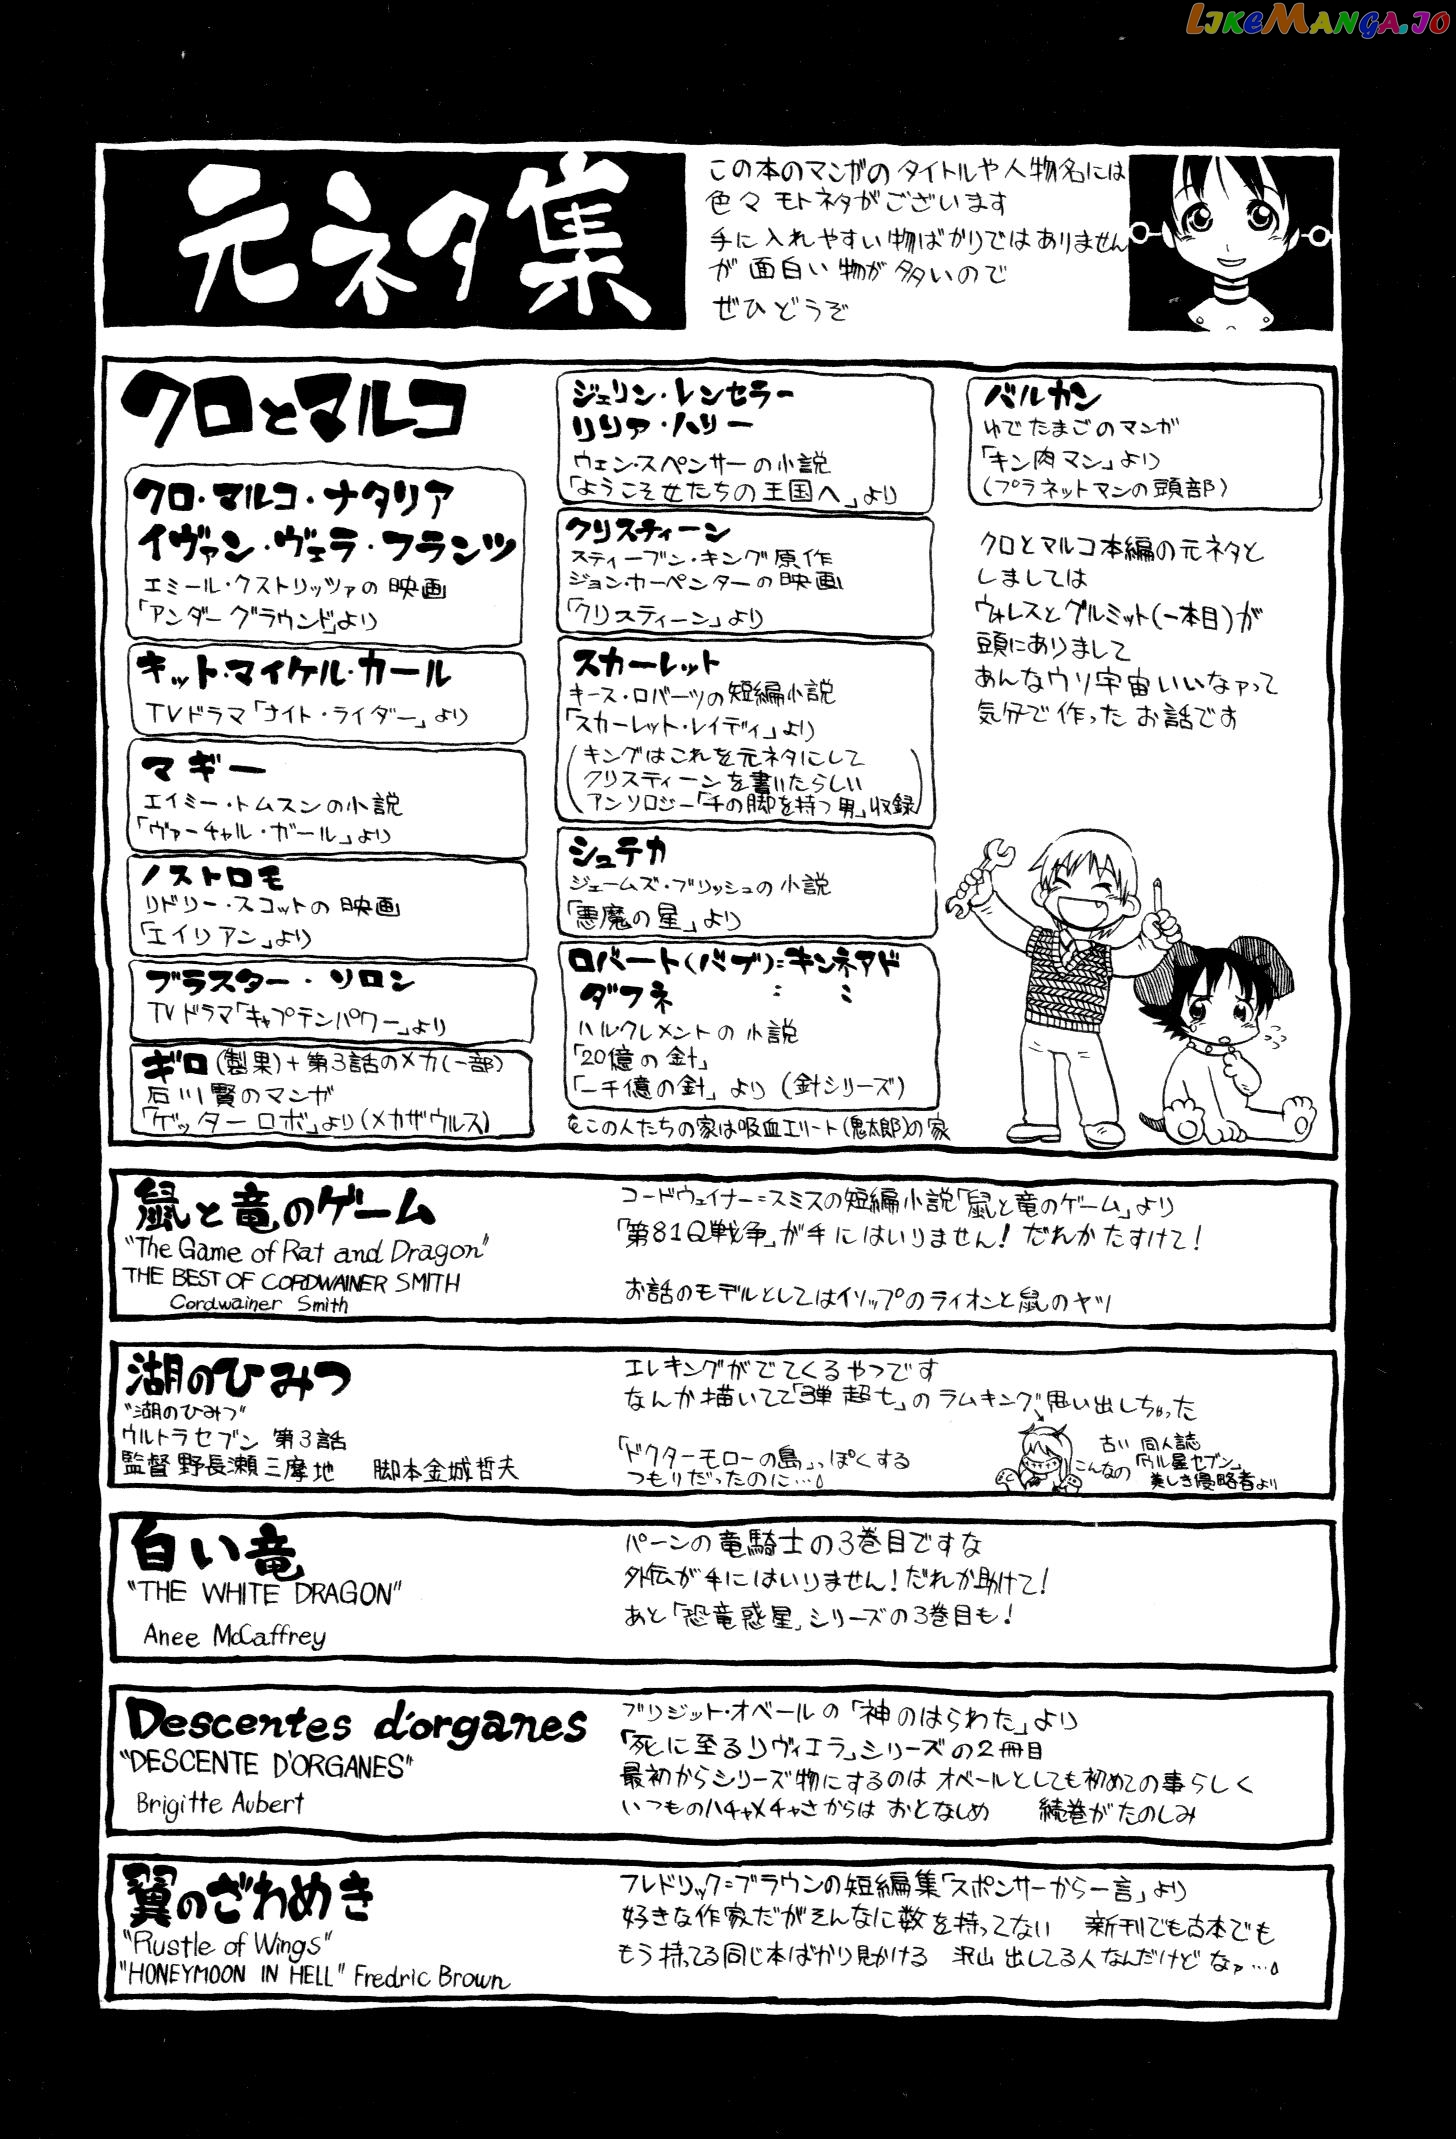 LIKEMANGA.IO
元ネタ集
この本のマンガのタイトルや人物名には
色々モトネタがございます
手に入れやすい物ばかりではありません
が面白い物が多いので
ぜひどうぞ
クロとマルコ
クロ・マルコ・ナタリア
イヴァン・ヴェラ・フランツ
エミール・クストリッツァの映画
「アンダーグラウンド」より
キット・マイケル・カール
TVドラマ「ナイト・ライダー」より
マギー
エイミー・トムスンの小説
「ヴァーチャル・ガール」より
ノストロモ
リドリー・スコットの映画
「エイリアン」より
ブラスター・ソロン
TVドラマ「キャプテンパワー」より
ギロ(製果)+第3話のメカ(一部)
石川賢のマンガ
「ゲッターロボ」より(メカザウルス)
ジェリン・レンセラー
リリア・ハリー
ウェン・スペンサーの小説
「ようこそ女たちの王国へ」より
クリスティーン
スティーブン・キング原作
ジョン・カーペンターの映画
「クリスティーン」より
スカーレット
キース・ロバーツの短編小説
「スカーレット・レイディ」より
(キングはこれを元ネタにして
クリスティーンを書いたらしい
アンソロジー「千の脚を持つ男」収録)
シュテカ
ジェームズ・ブリッシュの小説
「悪魔の星」より
ロバート(バブ)=キンネアド
ダフネ 〃 〃
ハル・クレメントの小説
「20億の針」
「一千億の針」より(針シリーズ)
↑この人たちの家は吸血エリート(鬼太郎)の家
バルカン
ゆでたまごのマンガ
「キン肉マン」より
(プラネットマンの頭部)
クロとマルコ本編の元ネタと
しましては
ウォレスとグルミット(一本目)が
頭にありまして
あんなウソ宇宙いいなァって
気分で作ったお話です
鼠と竜のゲーム
"The Game of Rat and Dragon"
THE BEST OF CORDWAINER SMITH
Cordwainer Smith
コードウェイナー=スミスの短編小説「鼠と竜のゲーム」より
「第81Q戦争」が手にはいりません!だれかたすけて!
お話のモデルとしてはイソップのライオンと鼠のヤツ
湖のひみつ
"湖のひみつ"
ウルトラセブン 第3話
監督 野長瀬三摩地 脚本 金城哲夫
エレキングがでてくるやつです
なんか描いてて「3弾 超七」のラムキング思い出しちゃった
「ドクターモローの島」っぽくする
つもりだったのに…。
こんなの
古い同人誌
「ウル星セブン」
美しき侵略者より
白い竜
"THE WHITE DRAGON"
Anee McCaffrey
パーンの竜騎士の3巻目ですな
外伝が手にはいりません!だれか助けて!
あと「恐竜惑星」シリーズの3巻目も!
Descentes d'organes
"DESCENTE D'ORGANES"
Brigitte Aubert
ブリジット・オベールの「神のはらわた」より
「死に至るリヴィエラ」シリーズの2冊目
最初からシリーズ物にするのはオベールとしても初めての事らしく
いつものハチャメチャさからはおとなしめ 続巻がたのしみ
翼のざわめき
"Rustle of Wings"
"HONEYMOON IN HELL" Fredric Brown
フレドリック=ブラウンの短編集「スポンサーから一言」より
好きな作家だがそんなに数を持ってない 新刊でも古本でも
もう持ってる同じ本ばかり見かける 沢山出してる人なんだけどなァ…。